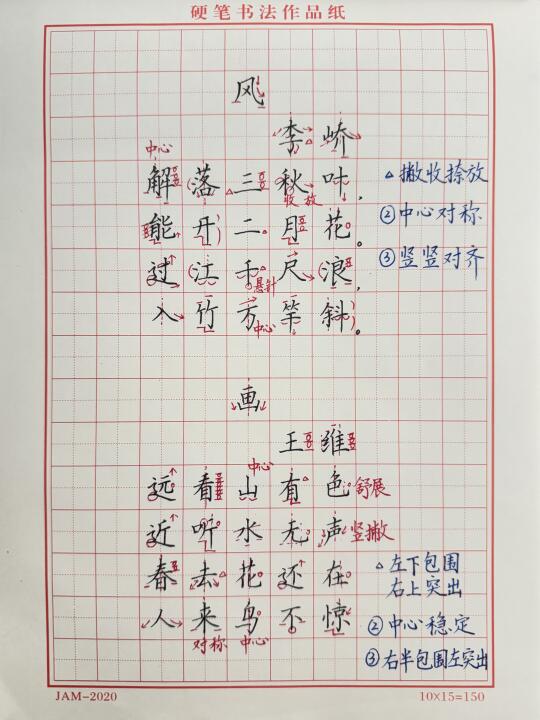 硬笔书法作品纸
风
李峤
中心
解落三秋叶，
收放
△撇收捺放
能开二月花。
②中心对称
过江千尺浪，
悬针
③竖竖对齐
入竹万竿斜。
中心
画
王维
中心
远看山有色
舒展
近听水无声
竖撇
春去花还在
△左下包围
右上突出
人来鸟不惊
②中心稳定
对称
中心
③右半包围左突出
JAM-2020
10×15=150